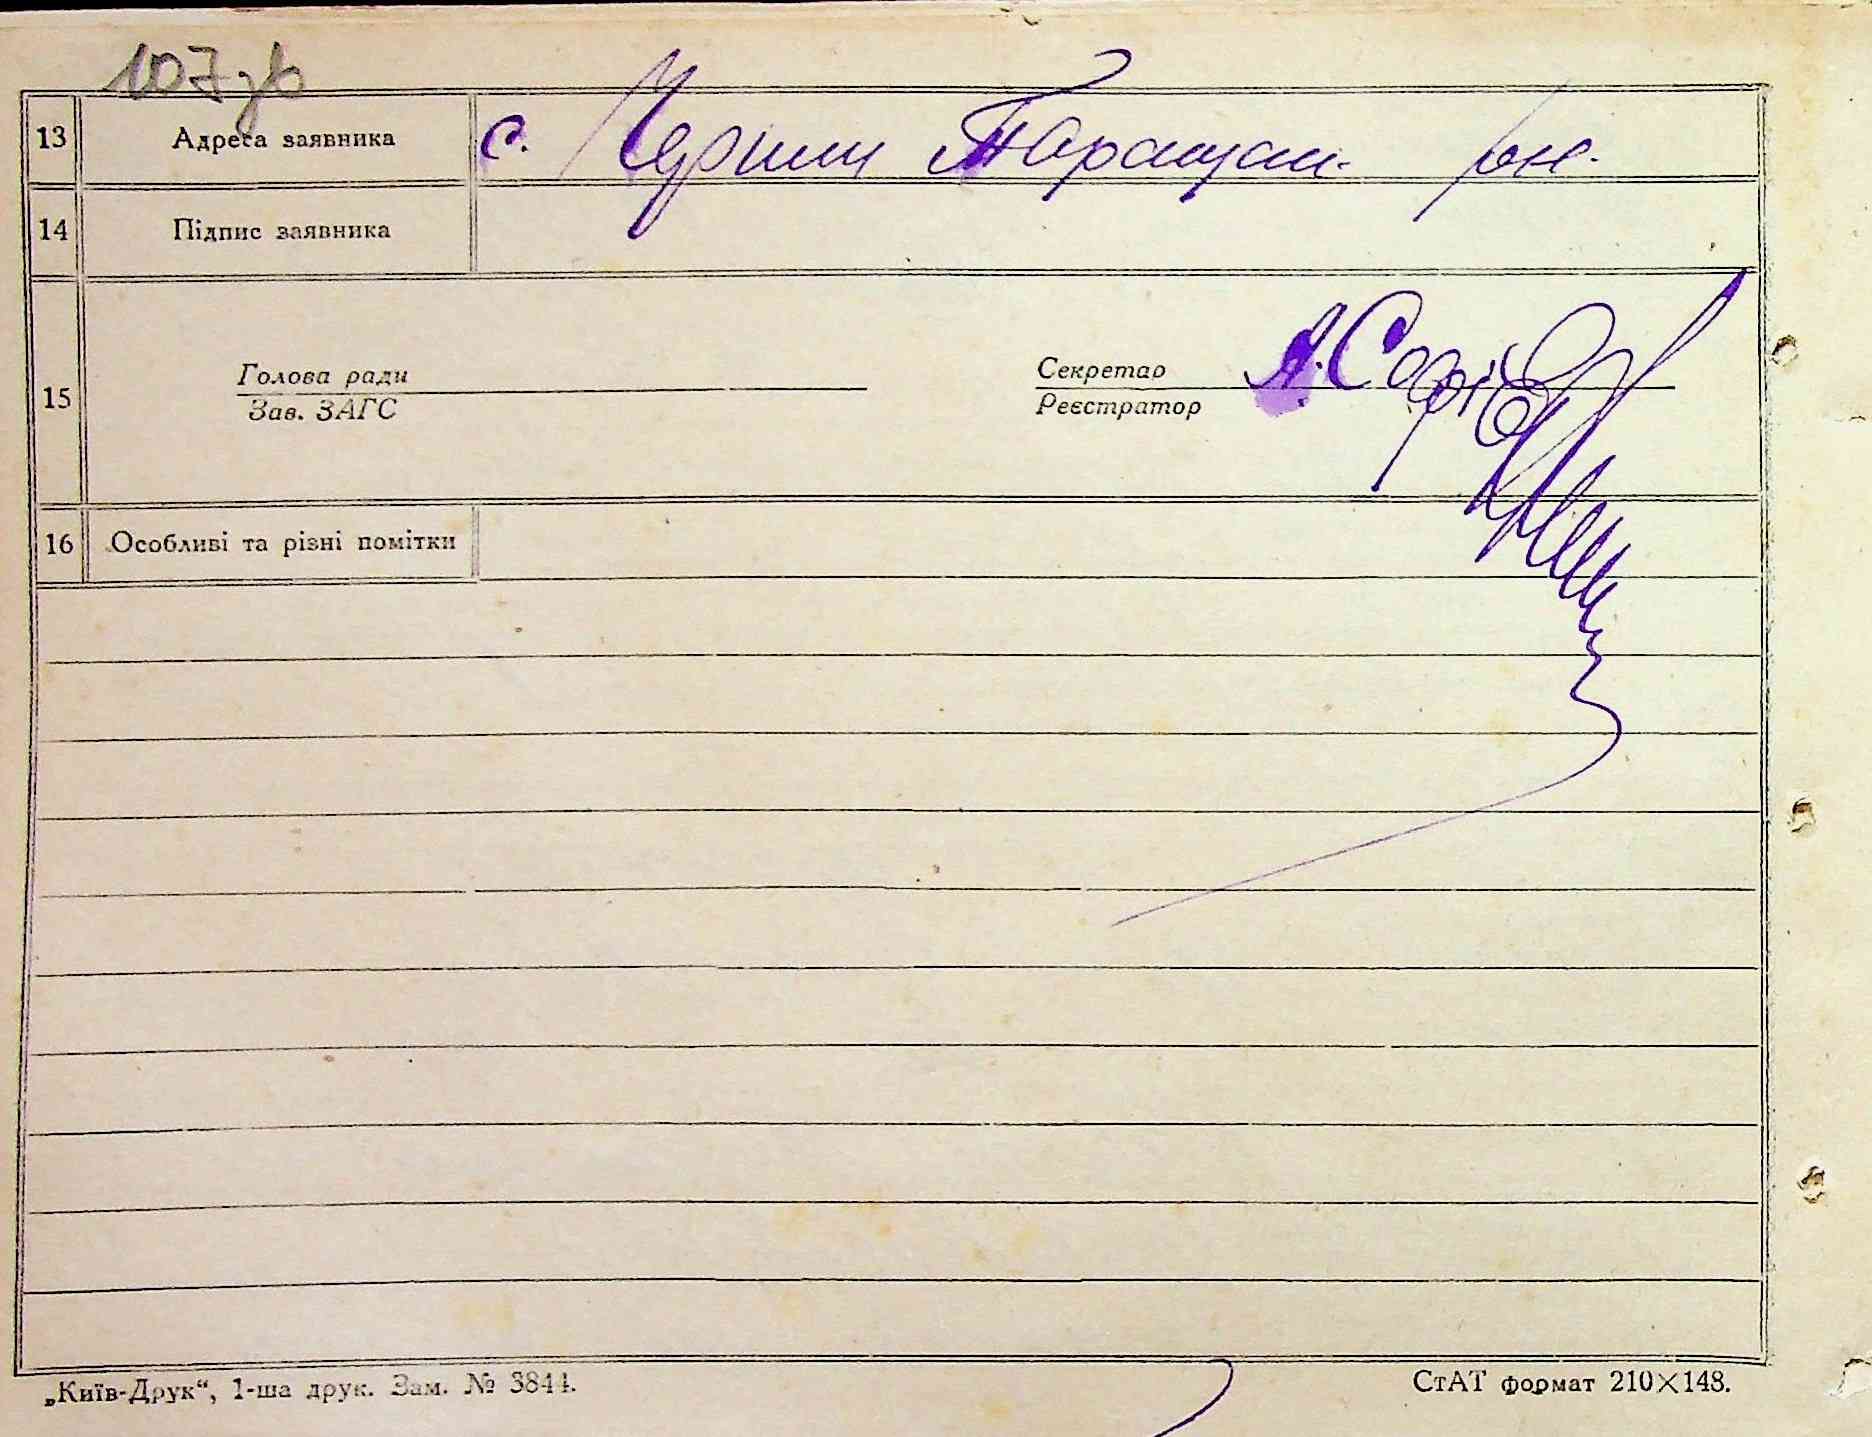 107 зв
13 Адреса заявника с. Чернин Таращан. рн.
14 Підпис заявника
Голова ради Секретар
15 А. Софіє
Зав. ЗАГС Реєстратор
16 Особливі та різні помітки
„Київ-Друк“, 1-ша друк. Зам. № 3844. СтАТ формат 210×148.